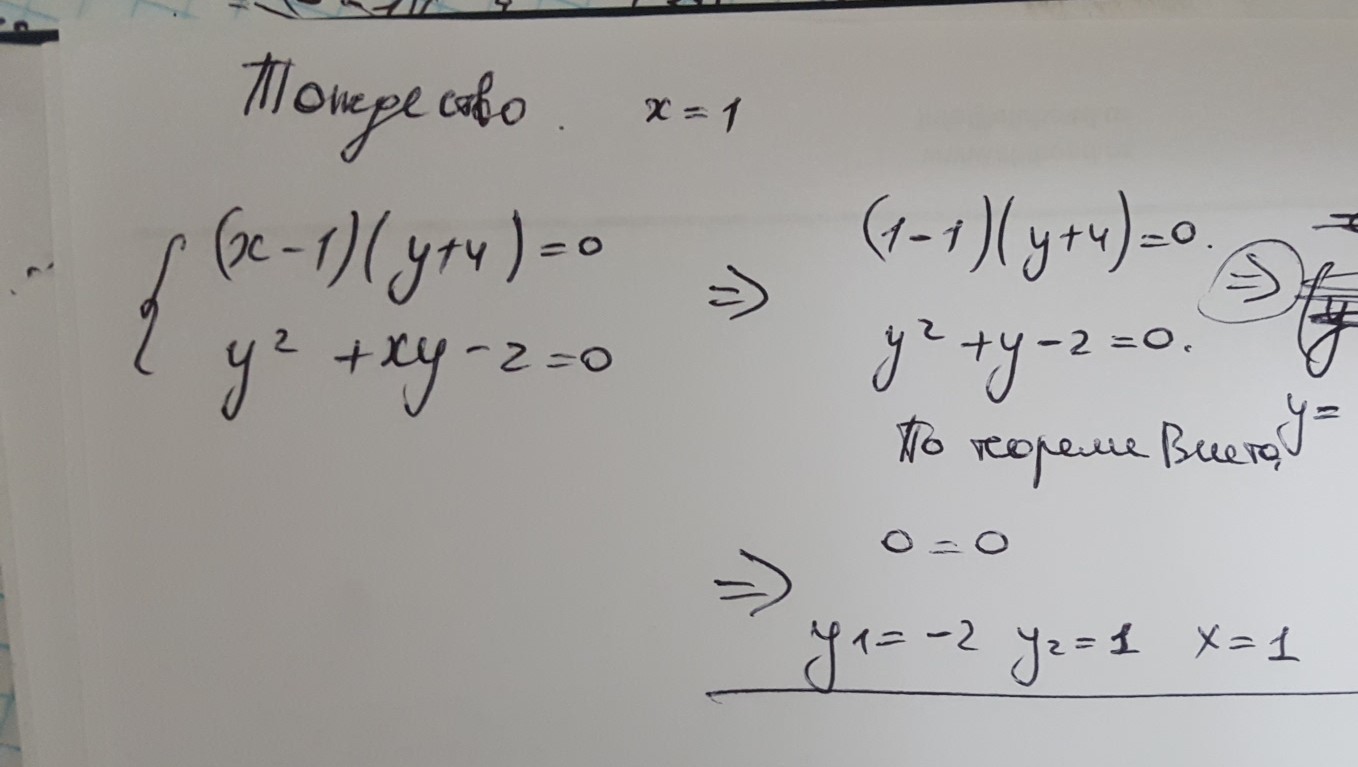 Тождество. x = 1
(x-1)(y+4)=0
y² + xy - 2 = 0
=>
(1-1)(y+4)=0.
y² + y - 2 = 0.
=>
По теореме Виета, y =
0 = 0
=>
y1 = -2 y2 = 1 x = 1